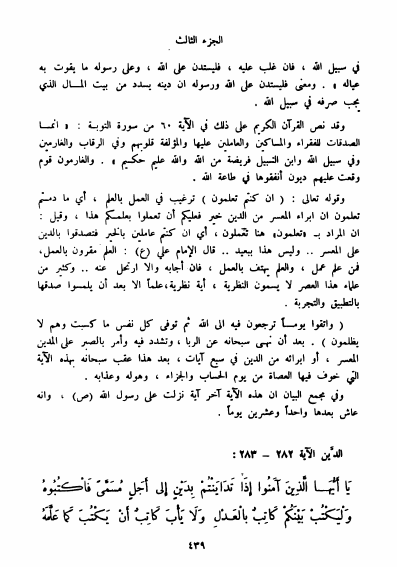 الجزء الثالث
في سبيل الله ، فان غلب عليه ، فليستدن على الله ، وعلى رسوله ما يقوت به
عياله » . ومعنى فليستدن على الله ورسوله ان دينه يسدد من بيت المال الذي
يجب صرفه في سبيل الله .
وقد نص القرآن الكريم على ذلك في الآية ٦٠ من سورة التوبة : « انما
الصدقات للفقراء والمساكين والعاملين عليها والمؤلفة قلوبهم وفي الرقاب والغارمين
وفي سبيل الله وابن السبيل فريضة من الله والله عليم حكيم » . والغارمون قوم
وقعت عليهم ديون أنفقوها في طاعة الله .
وقوله تعالى : ( ان كنتم تعلمون ) ترغيب في العمل بالعلم ، أي ما دمتم
تعلمون ان ابراء المعسر من الدين خير فعليكم أن تعملوا بعلمكم هذا ، وقيل :
ان المراد بـ «تعلمون» هنا تعملون ، أي ان كنتم عاملين بالخير فتصدقوا بالدين
على المعسر .. وليس هذا ببعيد .. قال الإمام علي (ع) : العلم مقرون بالعمل،
فمن علم عمل ، والعلم يهتف بالعمل ، فان أجابه والا ارتحل عنه .. وكثير من
علماء هذا العصر لا يسمون النظرية ، أية نظرية،علماً الا بعد أن يلمسوا صدقها
بالتطبيق والتجربة .
( واتقوا يوماً ترجعون فيه الى الله ثم توفى كل نفس ما كسبت وهم لا
يظلمون ) . بعد أن نهى سبحانه عن الربا ، وتشدد فيه وأمر بالصبر على المدين
المعسر ، أو ابرائه من الدين في سبع آيات ، بعد هذا عقب سبحانه بهذه الآية
التي خوف فيها العصاة من يوم الحساب والجزاء ، وهوله وعذابه .
وفي مجمع البيان ان هذه الآية آخر آية نزلت على رسول الله (ص) ، وانه
عاش بعدها واحداً وعشرين يوماً .
الدَّين الآية ٢٨٢ – ٢٨٣ :
يَا أَيُّهَا الَّذِينَ آمَنُوا إِذَا تَدَايَنْتُمْ بِدَيْنٍ إِلَى أَجَلٍ مُسَمًّى فَاكْتُبُوهُ
وَلْيَكْتُبْ بَيْنَكُمْ كَاتِبٌ بِالْعَدْلِ وَلَا يَأْبَ كَاتِبٌ أَنْ يَكْتُبَ كَمَا عَلَّمَهُ
٤٣٩